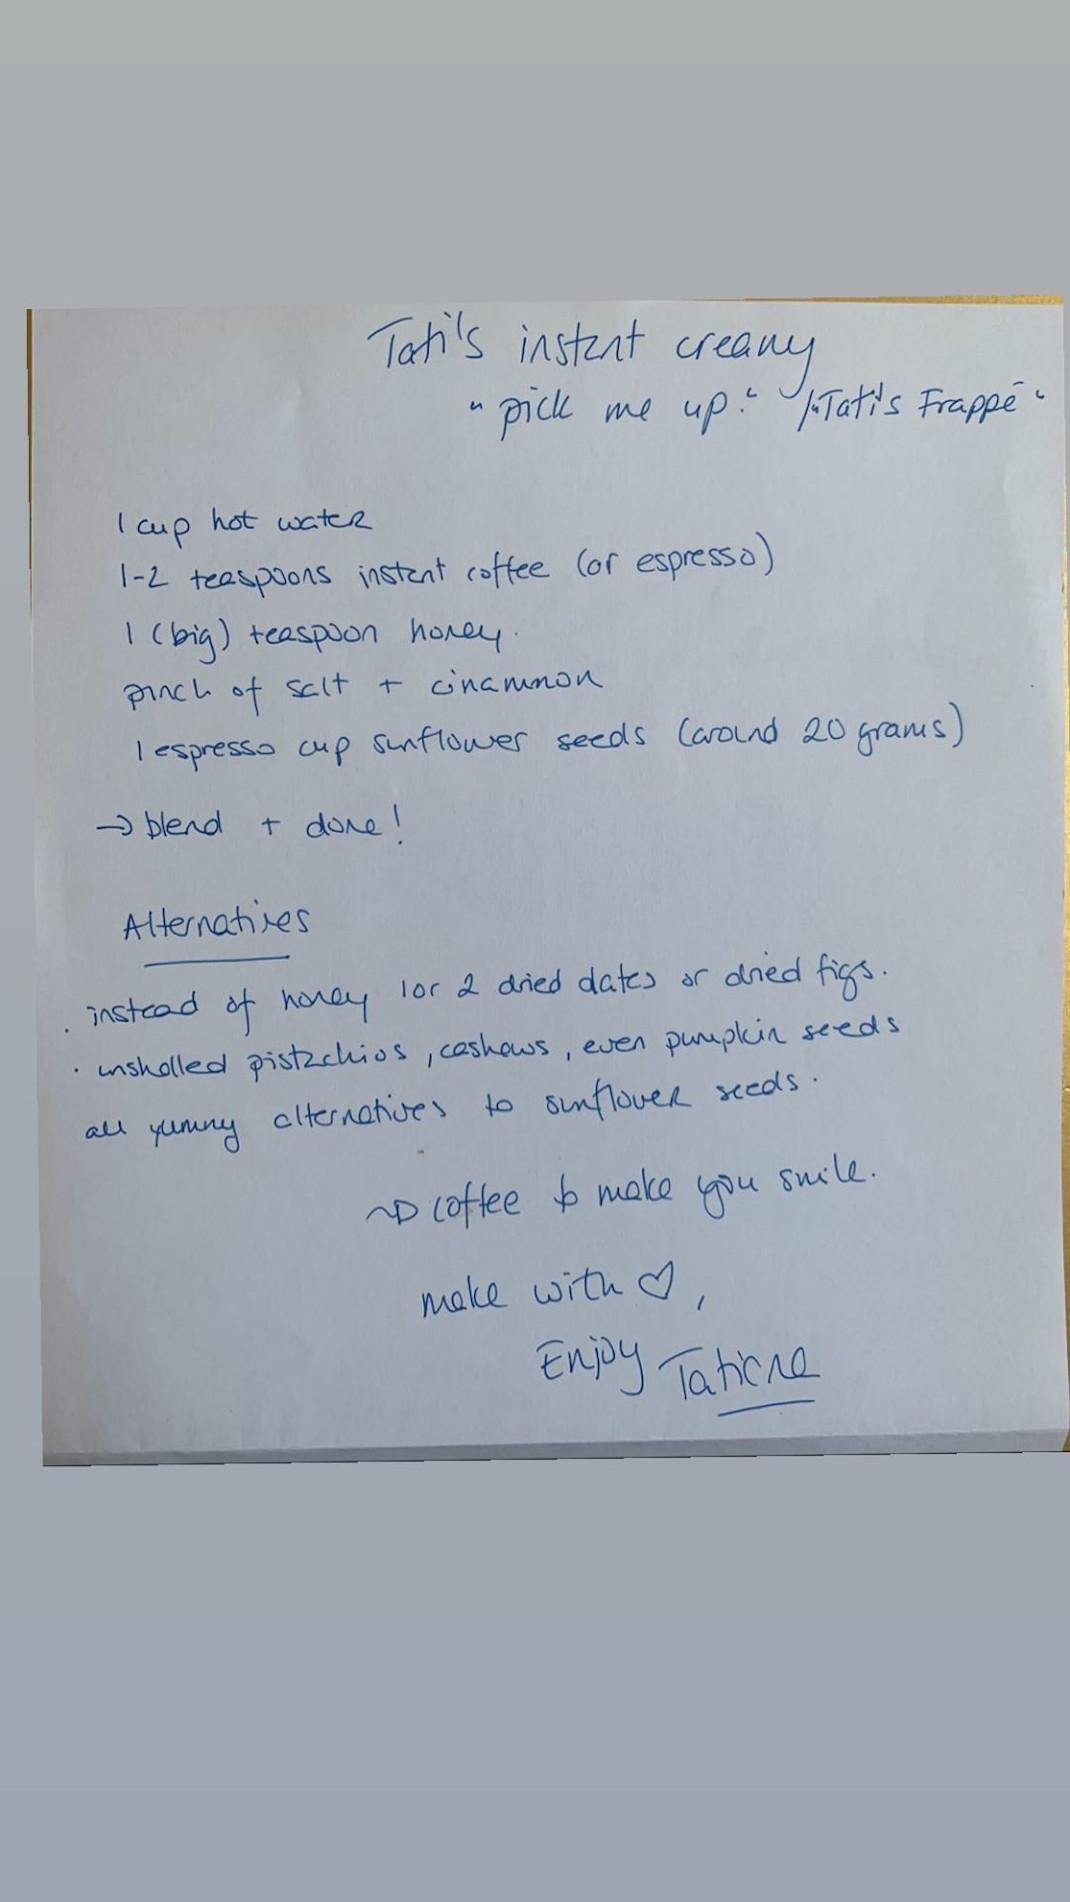 Tati's instant creamy
"pick me up." / "Tati's Frappé"
1 cup hot water
1-2 teaspoons instant coffee (or espresso)
1 (big) teaspoon honey.
pinch of salt + cinammon
1 espresso cup sunflower seeds (around 20 grams)
→ blend + done!
Alternatives
. instead of honey 1 or 2 dried dates or dried figs.
· unshelled pistachios, cashows, even pumpkin seeds
all yummy alternatives to sunflower seeds.
~> coffee to make you smile.
make with ♡,
Enjoy Tatiana